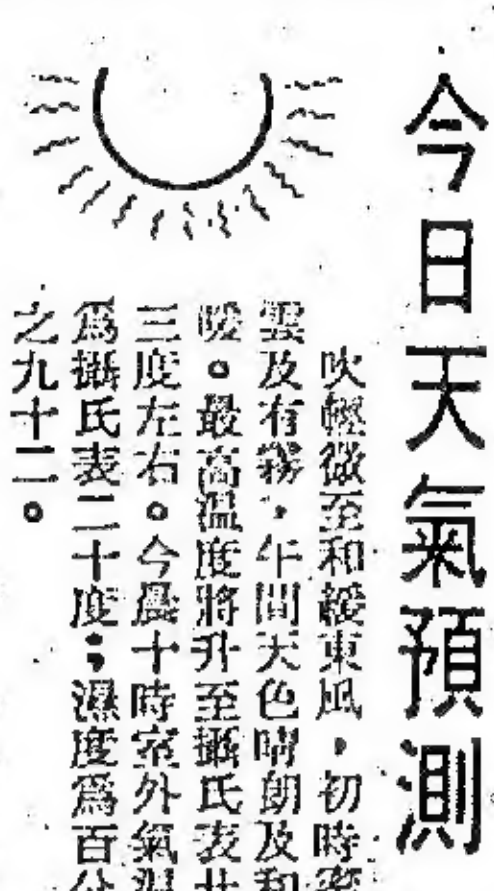 今日天氣預測
吹輕微至和緩東風，初時密
雲及有霧，午間天色晴朗及和
暖。最高溫度將升至攝氏表廿
三度左右。今晨十時室外氣溫
爲攝氏表二十度；濕度爲百分
之九十二。